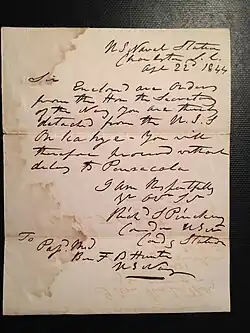 U.S. Naval Station
Charleston S.C.
Sept 22d 1844
Sir
Enclosed are Orders
from the Hon. the Secretary
of the Navy, you are thereby
detached from the U.S.S
On Ka hye - You will
therefore proceed without
delay to Pensacola
I am Respectfully
Yr Obt St
Richd S Pinckney
Comdr USN
Comdg Station
To
Pasd Md
Ben F B Hunter
US Navy